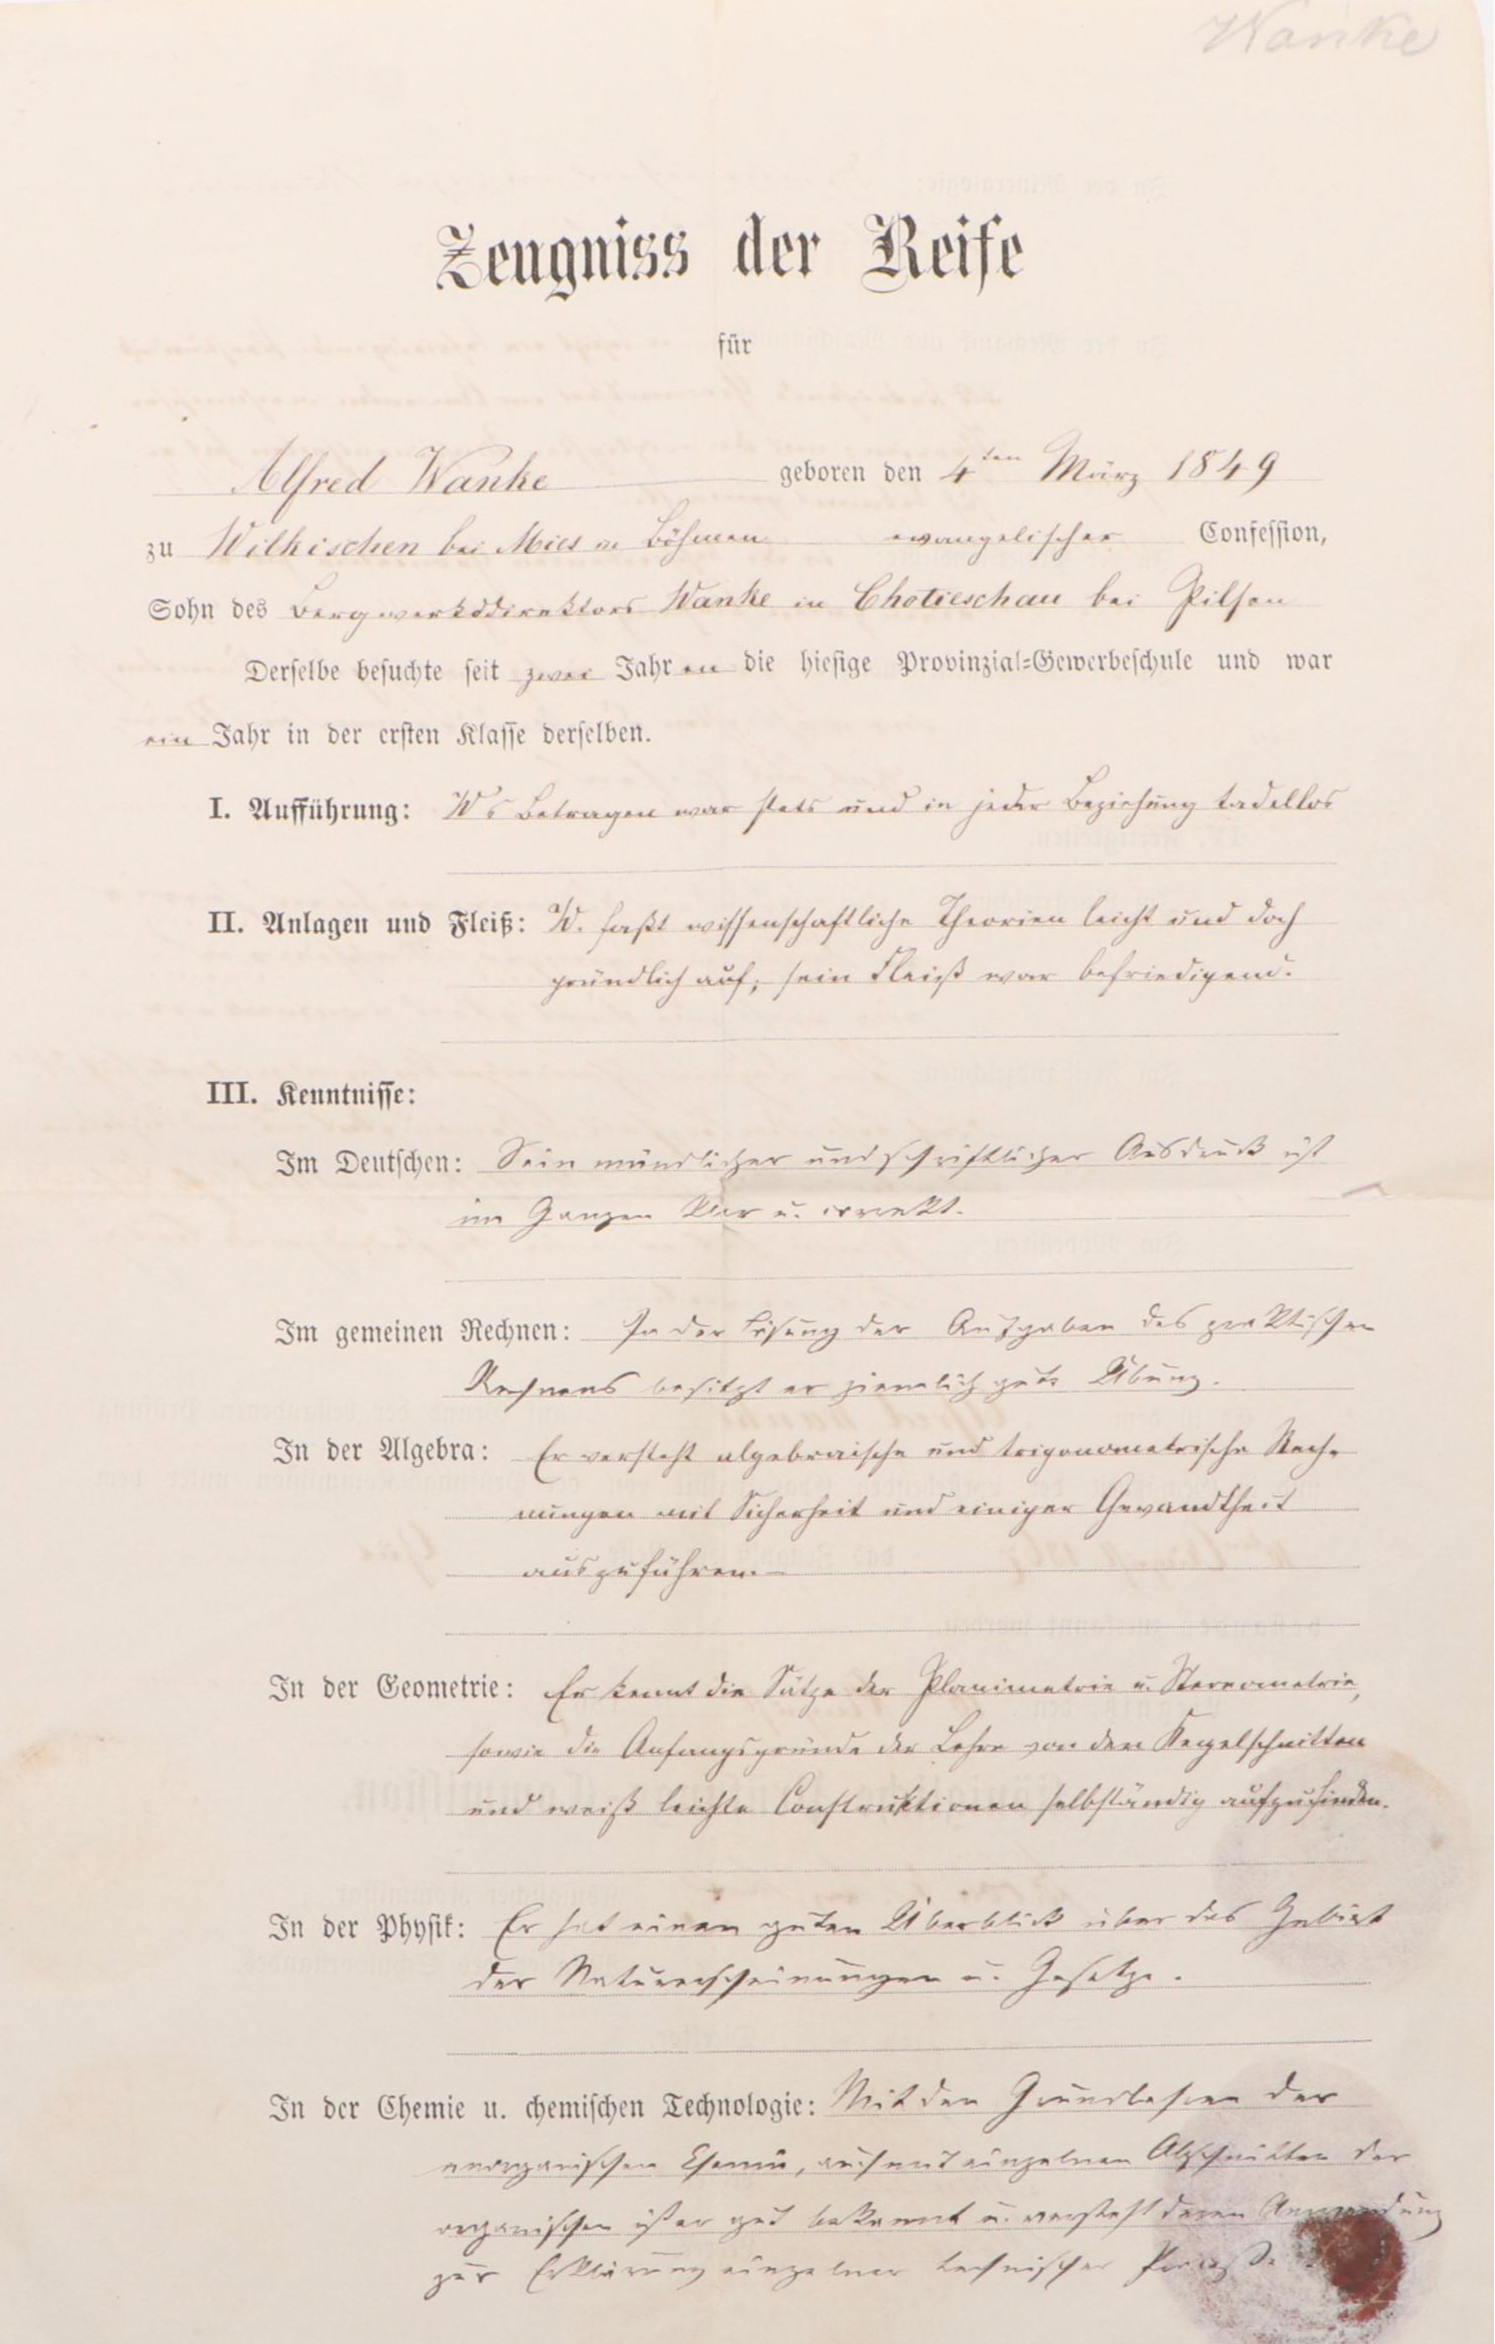 Wanke
Zeugniss der Reife
für
Alfred Wanke geboren den 4ten März 1849
zu Wilkischen bei Mies in Böhmen evangelischer Confession,
Sohn des Bergwerksdirektors Wanke in Chotieschau bei Pilsen
Derselbe besuchte seit zwei Jahren die hiesige Provinzial-Gewerbeschule und war
ein Jahr in der ersten Klasse derselben.
I. Aufführung: W's Betragen war stets und in jeder Beziehung tadellos
II. Anlagen und Fleiß: W. faßt wissenschaftliche Theorien leicht und doch
gründlich auf; sein Fleiß war befriedigend.
III. Kenntnisse:
Im Deutschen: Sein mündlicher und schriftlicher Ausdruck ist
im Ganzen klar u. correkt.
Im gemeinen Rechnen: In der Lösung der Aufgaben des praktischen
Rechnens besitzt er ziemlich gute Übung.
In der Algebra: Er versteht algebraische und trigonometrische Rech-
nungen mit Sicherheit und einiger Gewandtheit
auszuführen.
In der Geometrie: Er kennt die Sätze der Planimetrie u. Stereometrie,
sowie die Anfangsgründe der Lehre von den Kegelschnitten
und weiß leichte Construktionen selbständig aufzufinden.
In der Physik: Er hat einen guten Überblick über das Gebiet
der Naturerscheinungen u. Gesetze.
In der Chemie u. chemischen Technologie: Mit den Grundlehren der
unorganischen Chemie, auch mit einzelnen Abschnitten der
organischen ist er gut bekannt u. versteht deren Anwendung
zur Erklärung einzelner technischer Prozesse